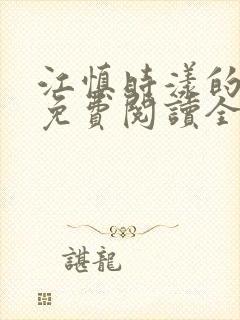 江慎時漾的
免費閱讀全
諶龍